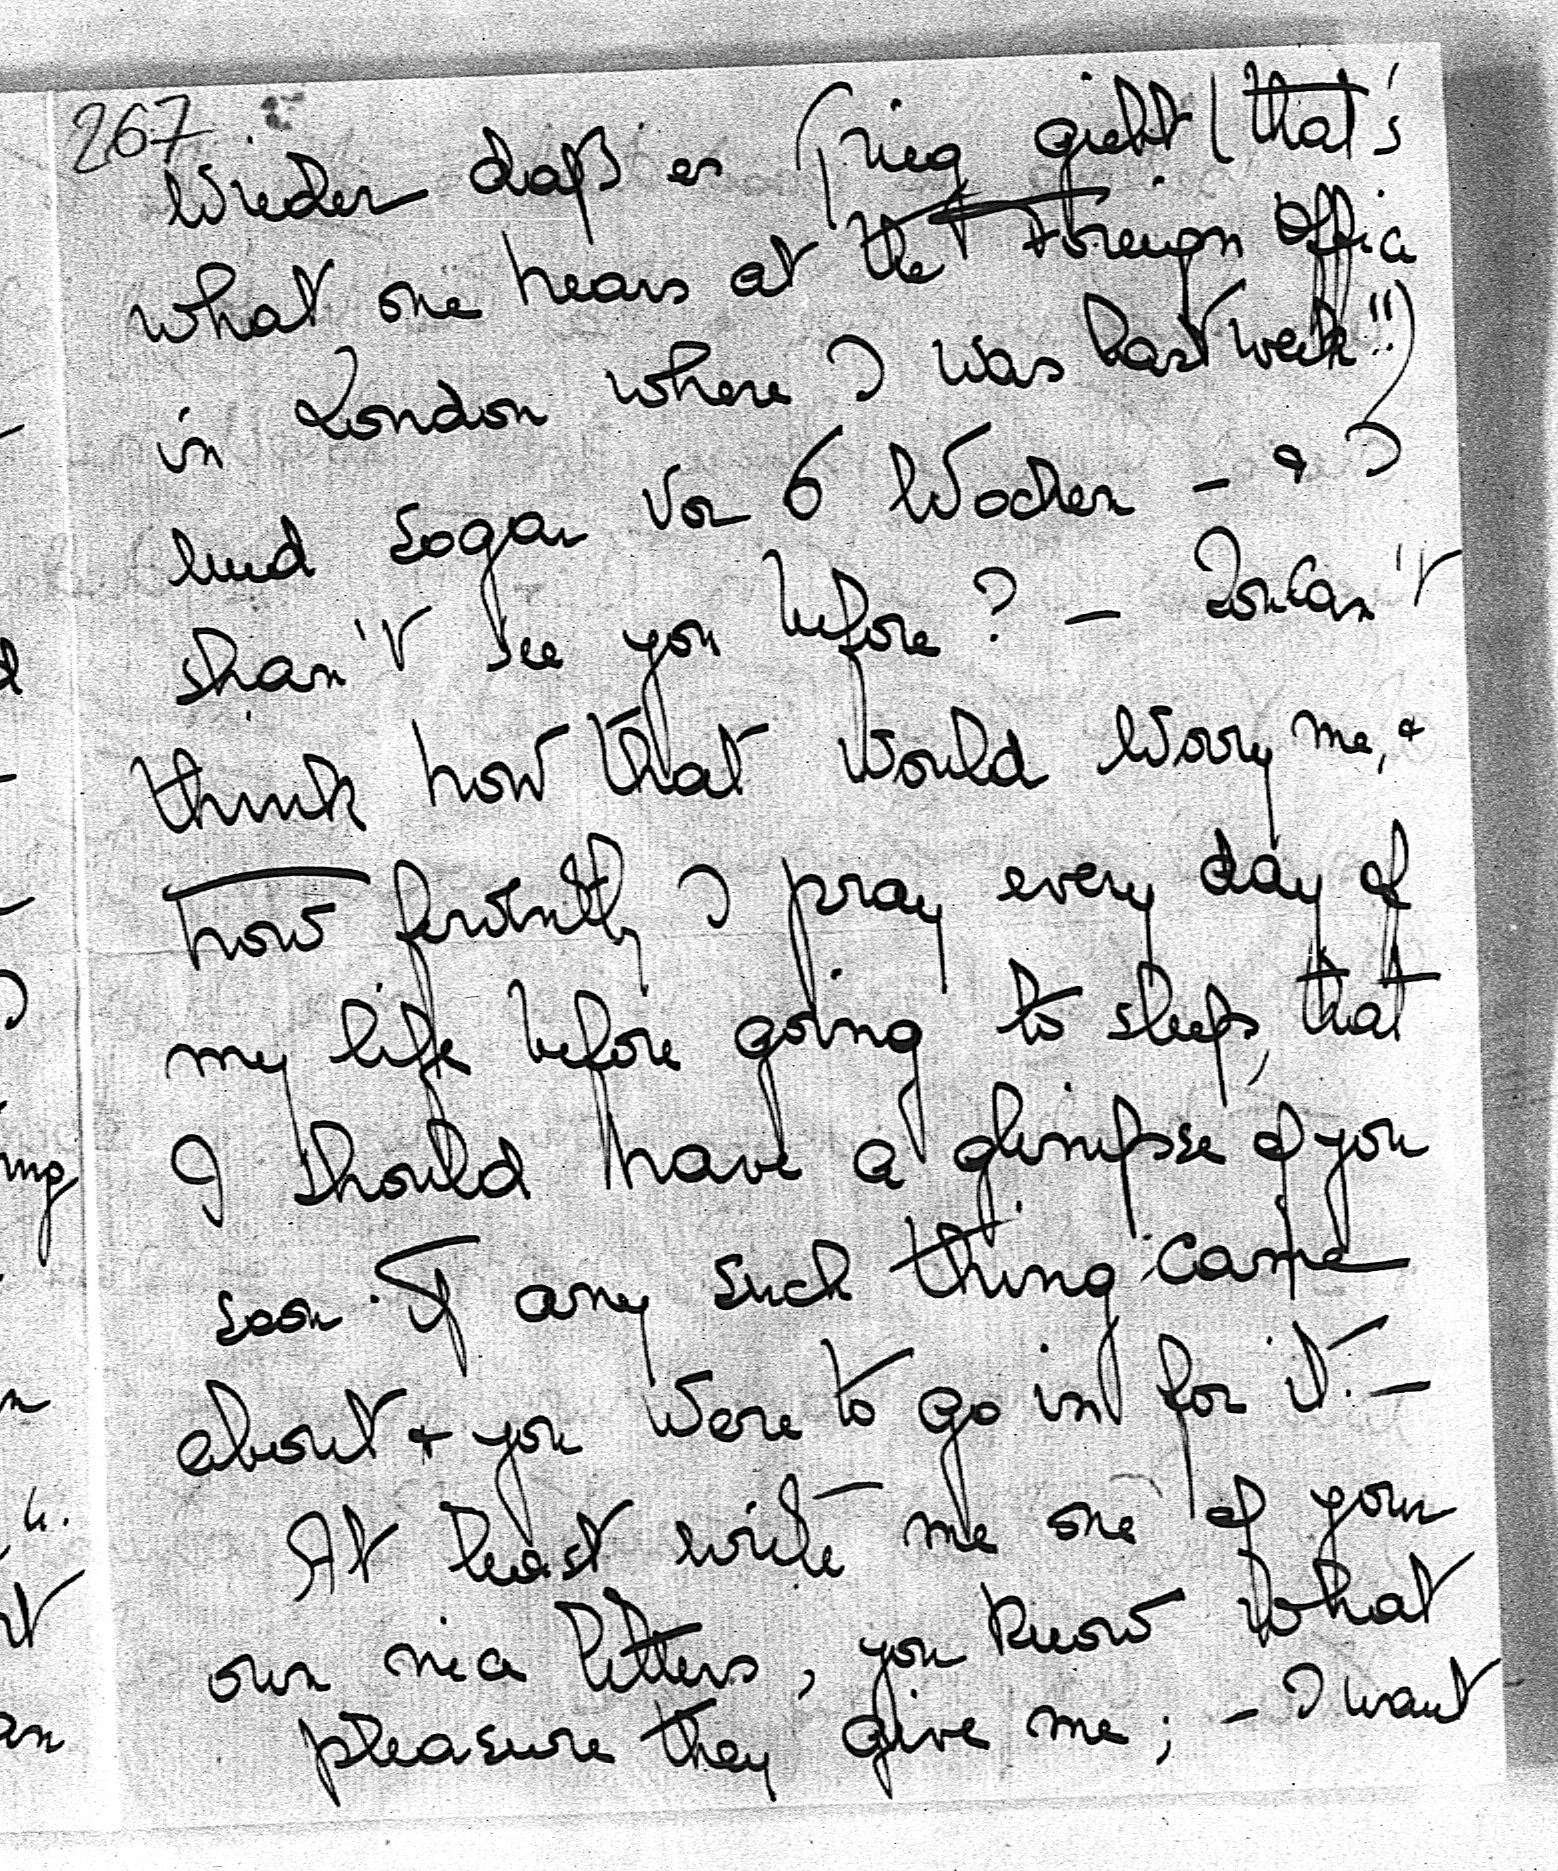 267
Wieder daß es Krieg giebt (that's
what one hears at the Foreign Office
in London where I was last week!!)
und sogar vor 6 Wochen – & I
shan't see you before? – You can't
think how that would worry me, &
how fervently I pray every day of
my life before going to sleep, that
I should have a glimpse of you
soon. If any such thing came
about & you were to go in for it. –
At least write me one of your
own nice letters, you know what
pleasure they give me; – I want